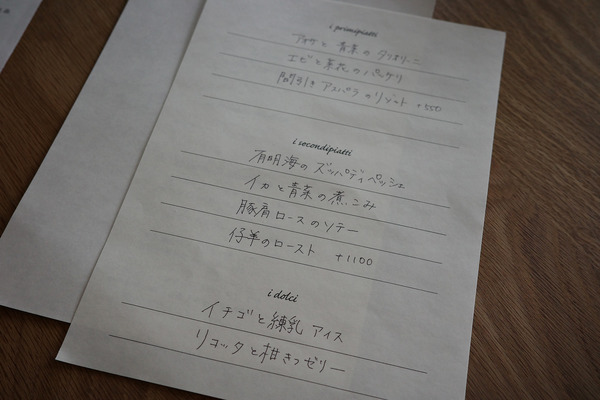 i primipiatti
アサリと青菜のタリオリーニ
エビと菜花のパッケリ
間引きアスパラのリゾット +550
i secondipiatti
有明海のズッパディペッシェ
イカと青菜の煮こみ
豚肩ロースのソテー
仔羊のロースト +1100
i dolci
イチゴと練乳アイス
リコッタと柑きつゼリー